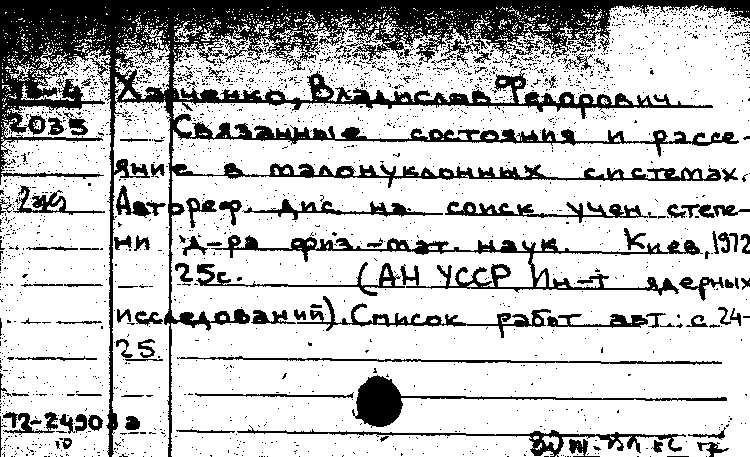 Харченко, Владислав Федорович.
2035 Связанные состояния и рассе-
яние в малонуклонных системах.
Автореф. дис. на соиск. учен. степе-
ни д-ра физ.-мат. наук. Киев, 1972
25с. (АН УССР. Ин-т ядерных
исследований). Список работ авт.: с. 24-
25
72-24903а